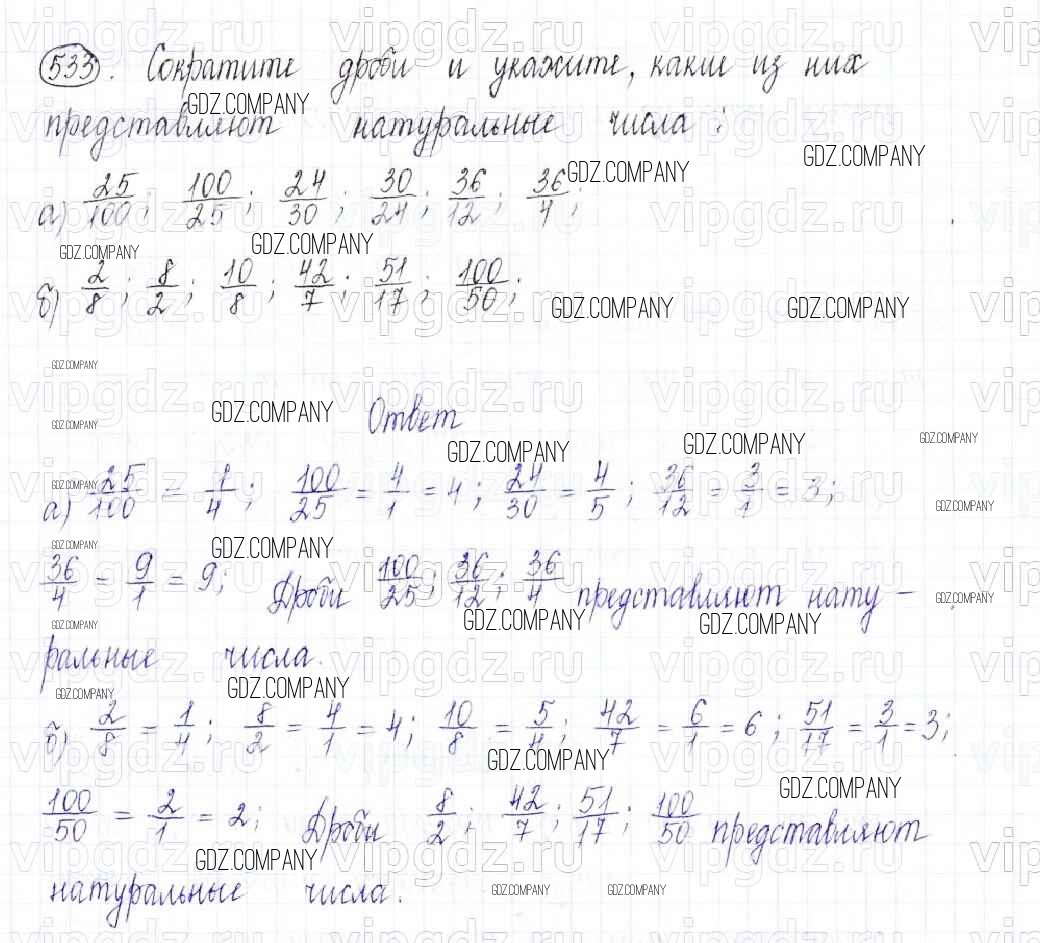 533. Сократите дроби и укажите, какие из них
представляют натуральные числа:
а) 25/100; 100/25; 24/30; 30/24; 36/12; 36/4;
б) 2/8; 8/2; 10/8; 42/7; 51/17; 100/50;
Ответ
а) 25/100 = 1/4; 100/25 = 4/1 = 4; 24/30 = 4/5; 36/12 = 3/1 = 3;
36/4 = 9/1 = 9; Дроби 100/25; 36/12; 36/4 представляют нату-
ральные числа.
б) 2/8 = 1/4; 8/2 = 4/1 = 4; 10/8 = 5/4; 42/7 = 6/1 = 6; 51/17 = 3/1 = 3;
100/50 = 2/1 = 2; Дроби 8/2; 42/7; 51/17; 100/50 представляют
натуральные числа.
GDZ.COMPANY
vipgdz.ru